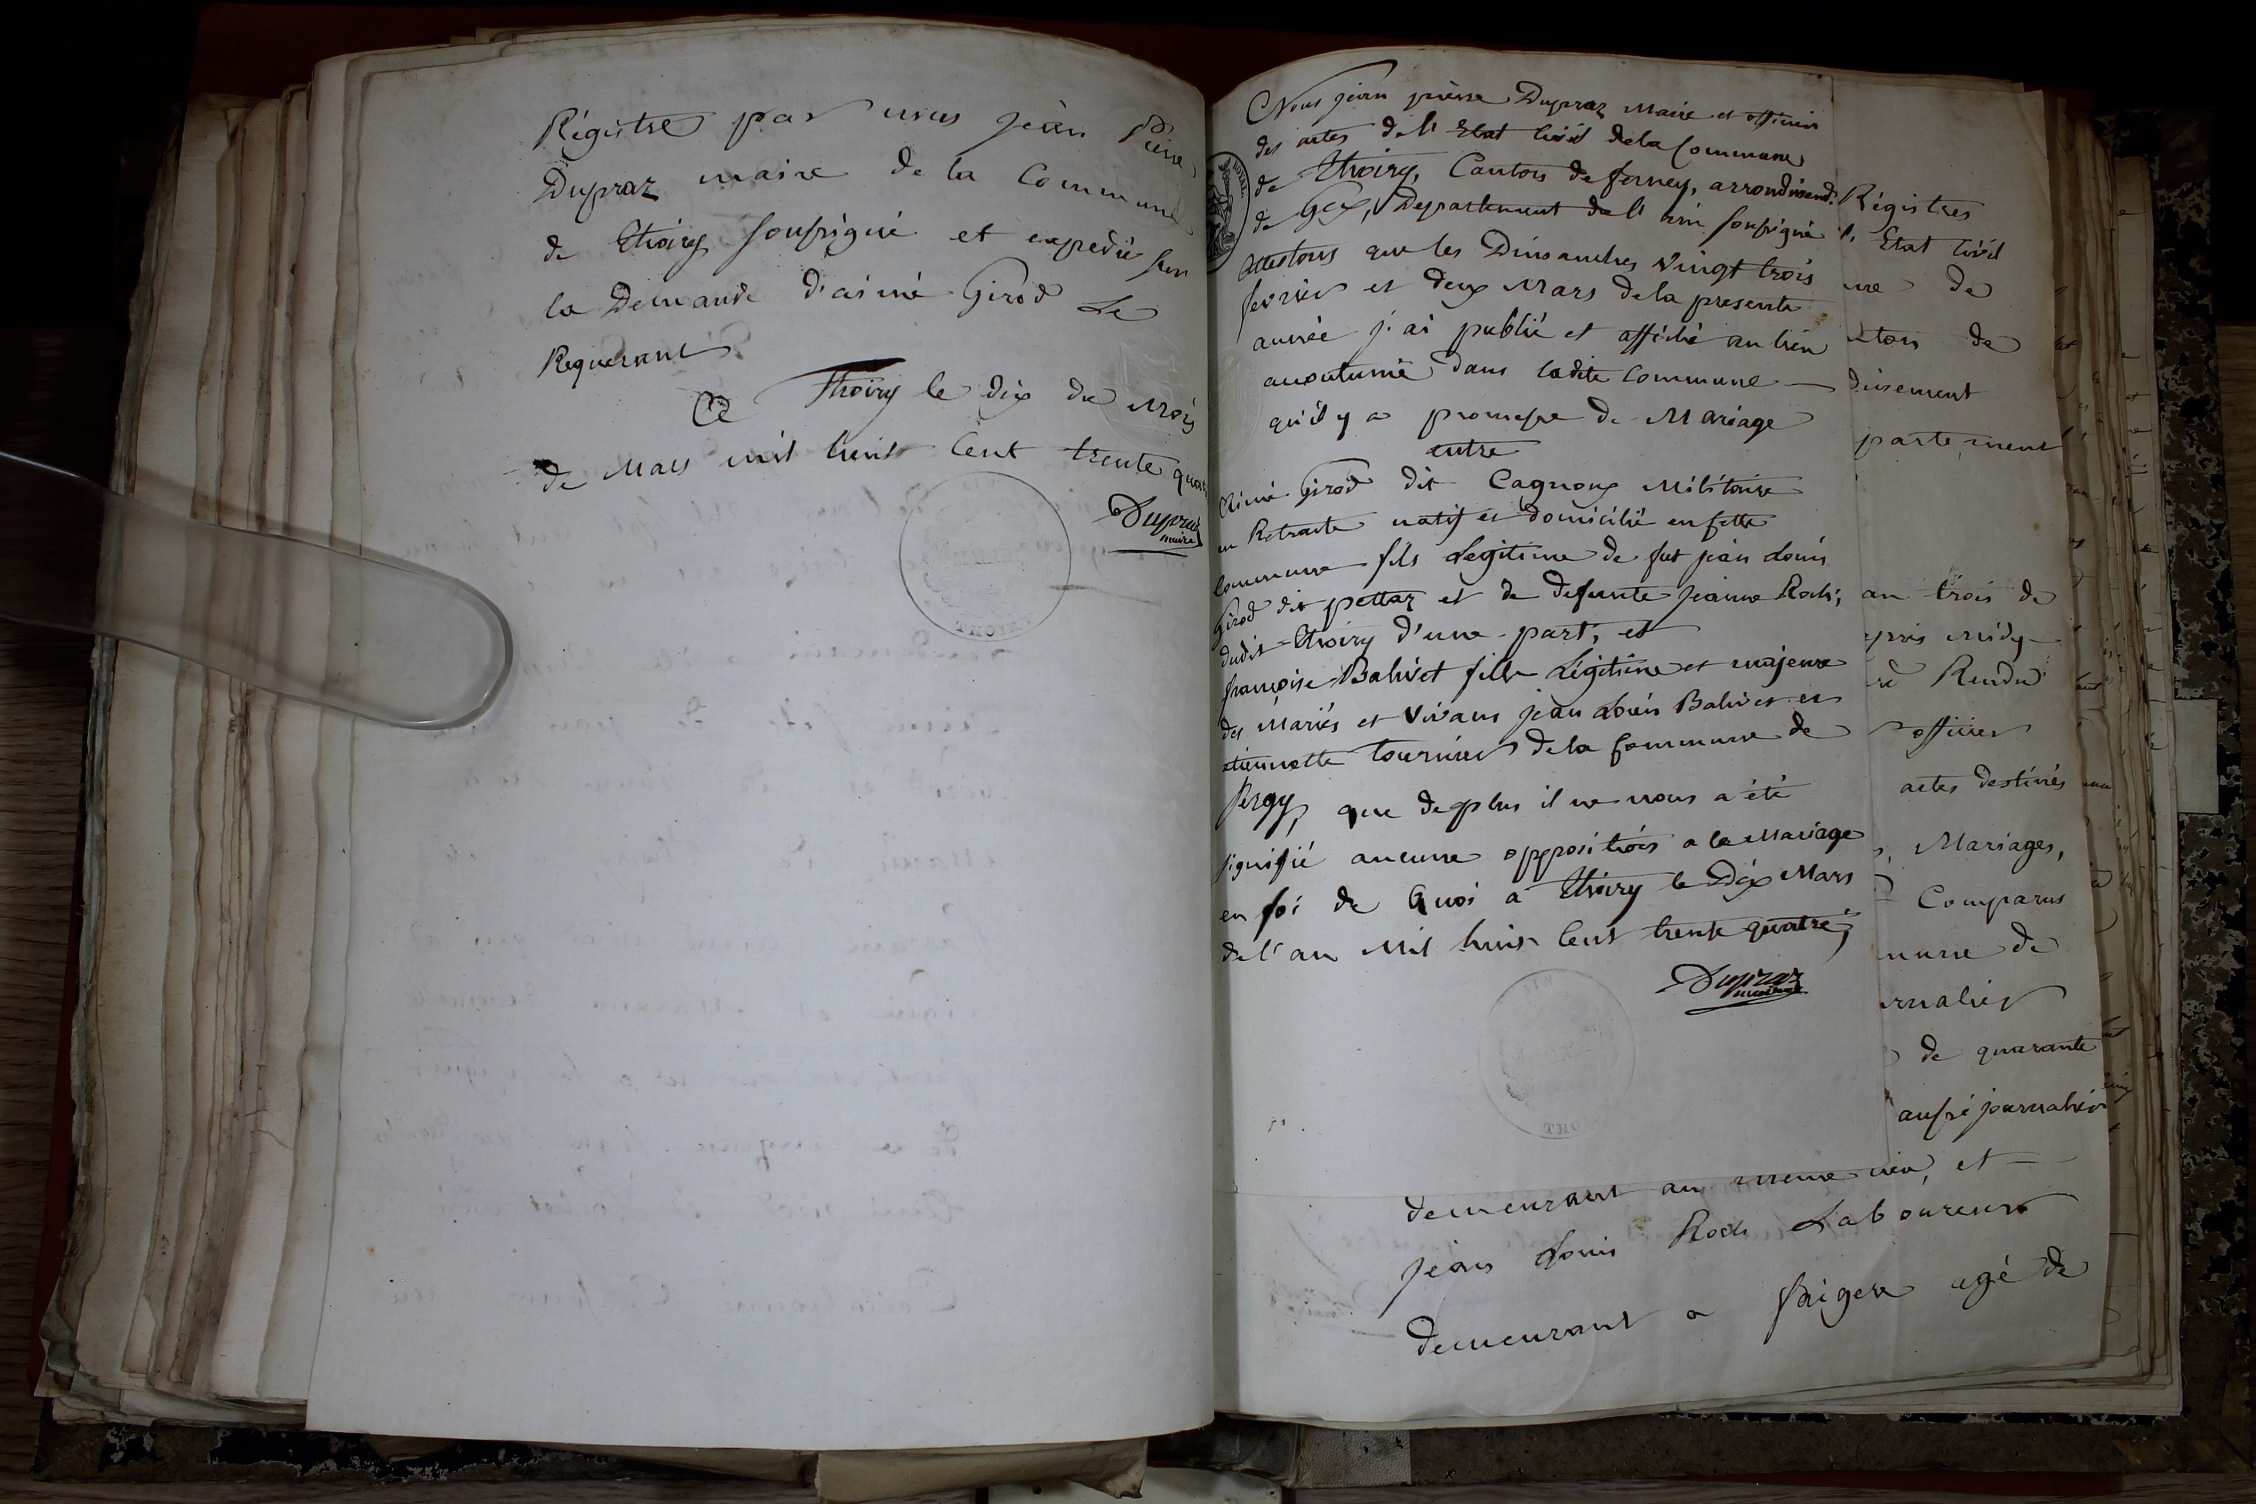 Régistre par nous jean Pierre
Dupraz maire de la Commune
de Thoiry soussigné et expedié sur
la Demande d'aimé Girod Le
Requerant
A Thoiry le dix du Mois
de Mars mil huit Cent trente quatre
Dupraz
maire
THOIRY
Nous jean pierre Dupraz Maire et officier
des actes de l'Etat Civil de la Commune
de Thoiry, Canton de ferney, arrondissemt.
de Gex, Departement de l'ain soussigné
Attestons que les Dimanches Vingt trois
fevrier et deux Mars de la presente
année j'ai publié et affiché au lieu
accoutumé dans ladite Commune
qu'il y a promesse de Mariage
entre
Aimé Girod dit Cagnoux Militaire
en Retraite natif et domicilié en cette
Commune fils Legitime de fut jean Louis
Girod dit pettaz et de defunte jeanne Roch;
dudit Thoiry d'une part; et
françoise Balivet fille Légitime et majeure
des Mariés et Vivans jean Louis Balivet et
etiennette tournier de la Commune de
Sergy, que de plus il ne nous a été
signifié aucune oppositions a ce Mariage
en foi de Quoi a Thoiry le Dix Mars
de l'an Mil huit Cent trente quatre;
Dupraz
THO
Régistres
Etat Civil
de
de
partement
an trois de
Midy
Rendu
officier
actes destinés
Mariages,
Comparus
de
de quarante
aussi journalier
demeurant au meme lieu, et
jean Louis Roch Laboureur
demeurant a faigere agé de